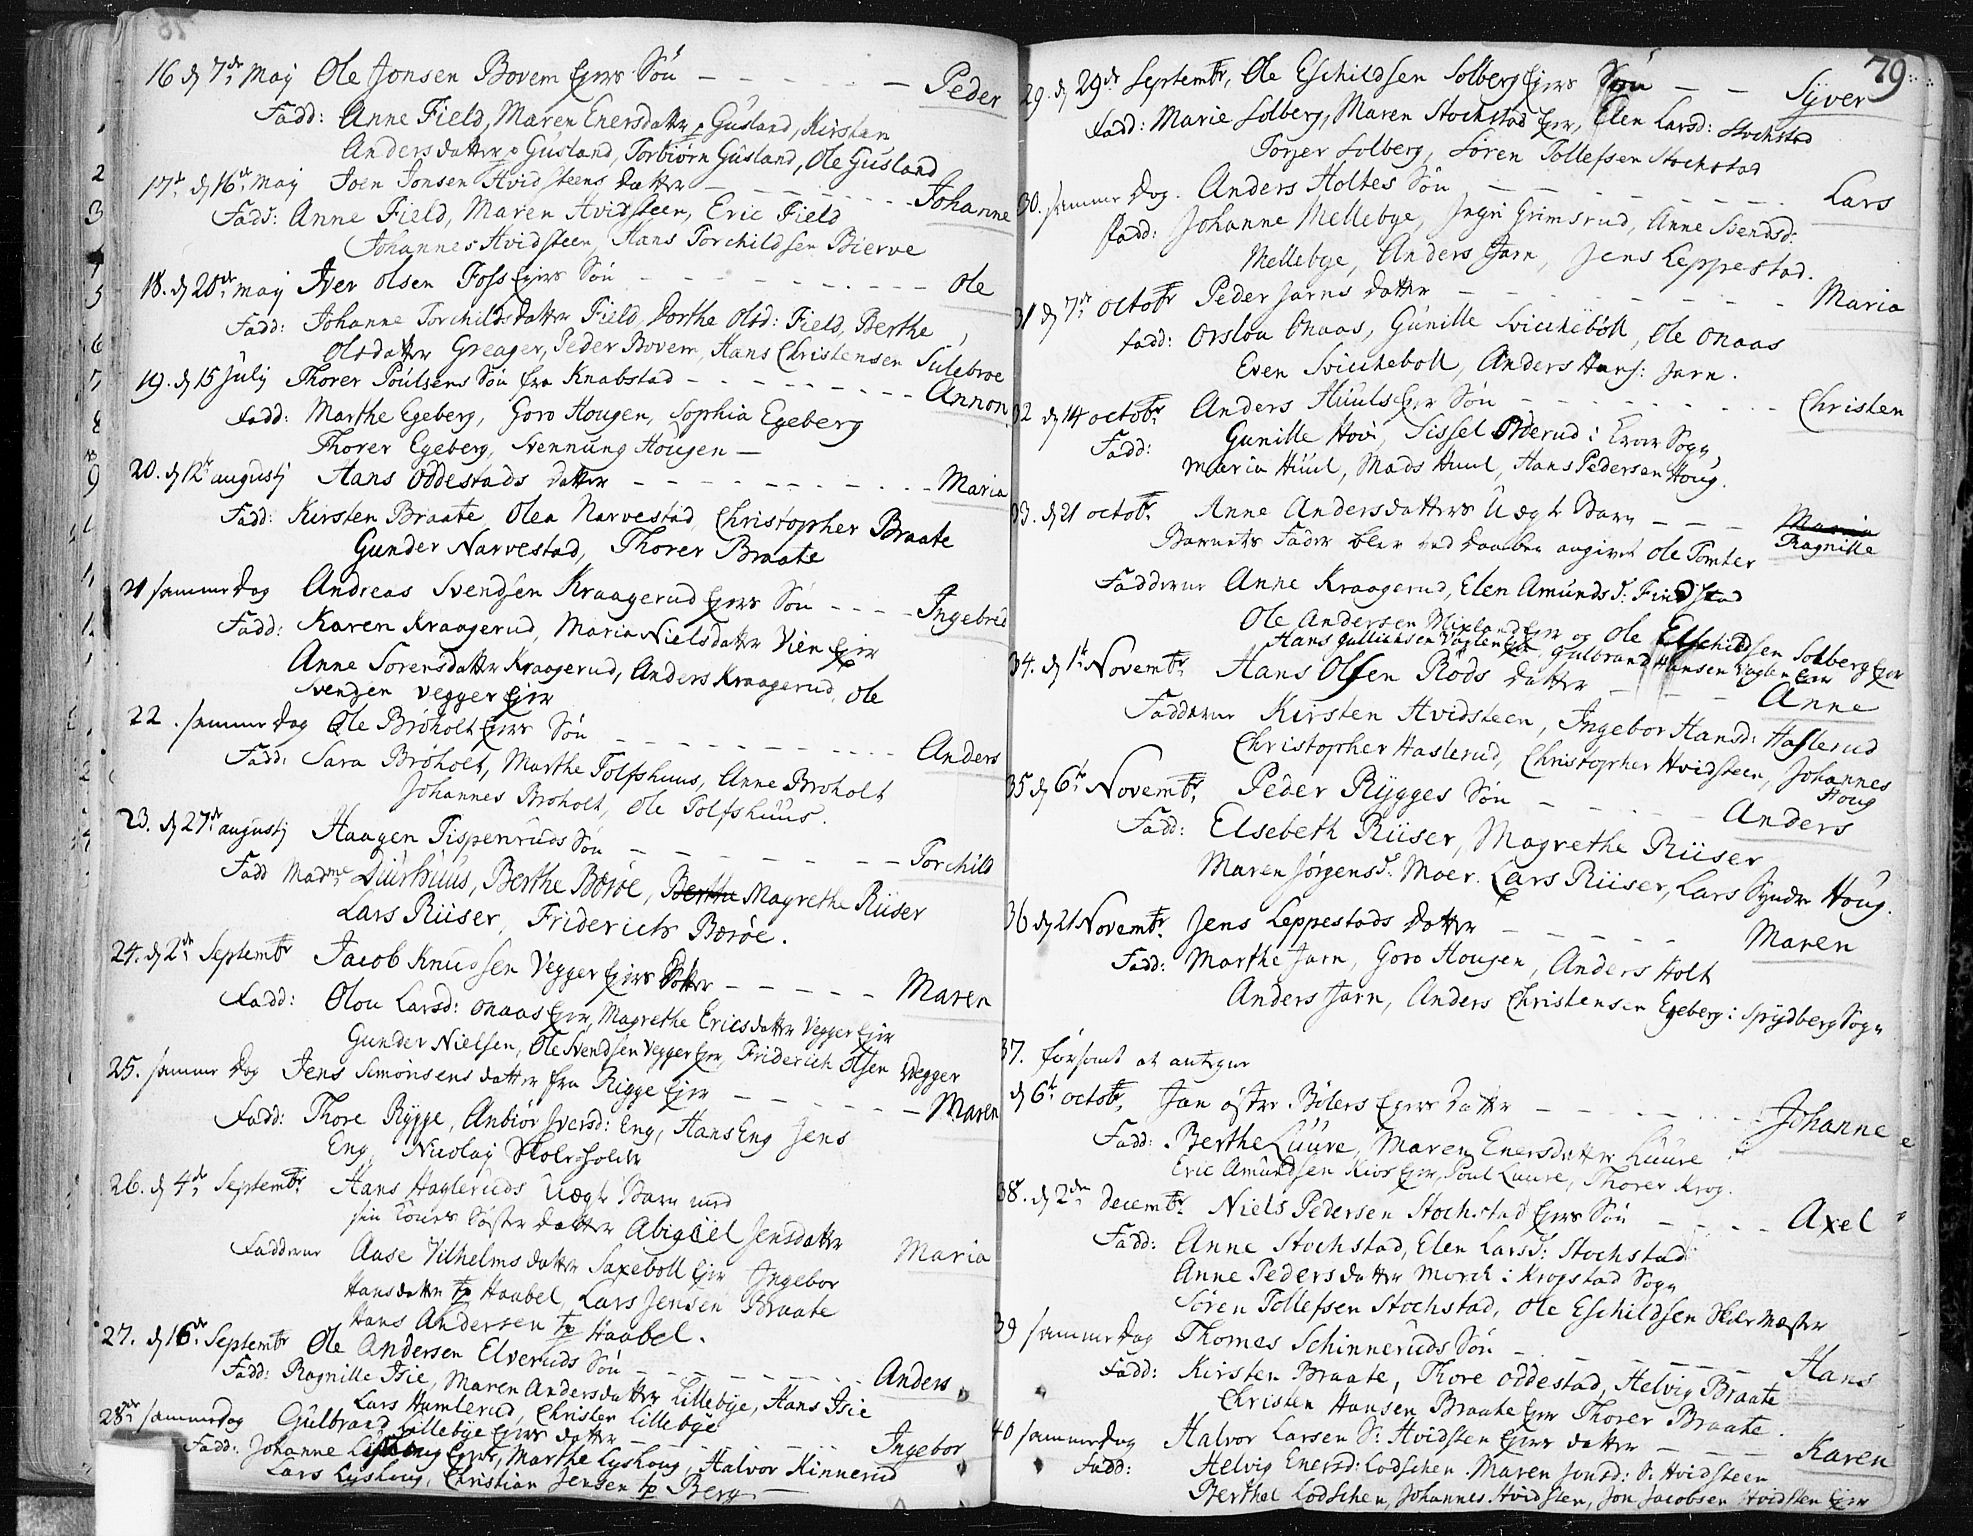 16 d 7de Maij Ole Jonsen Bovem Ejers Søn - - - - - Peder
Fadd: Anne Field, Maren Enersdatter p Gusland, Kirsten
Andersdatter p Gusland, Torbiørn Gusland, Ole Gusland
17de d 16de Maij Joen Jonsen Hvidsteens datter - - - - Johanne
Fadd: Anne Field, Maren Hvidsteen, Eric Field
Johannes Hvidsteen, Hans Torchildsen Bierve
18. d 20de Maij Iver Olsen Foss Ejers Søn - - - - - Ole
Fadd: Johanne Torchildsdatter Field, Dorthe Olsd: Field, Berthe
Olsdatter Greager, Peder Bovem, Hans Christensen Sulebroe
19. d 15 Julij Thorer Poulsens Søn fra Knabstad - - - - - Annon
Fadd: Marthe Egeberg, Goro Hougen, Sophia Egeberg
Thorer Egeberg, Svennung Hougen -
20. d 12te augustij Hans Oddestads datter - - - - - Maria
Fadd: Kirsten Braate, Olea Narvestad, Christopher Braate
Gunder Narvestad, Thorer Braate
21 samme Dag Andreas Svendsen Kraagerud Ejers Søn - - - - Ingebret
Fadd: Karen Kraagerud, Maria Nielsdatter Vien Ejer
Anne Sørensdatter Kraagerud, Anders Kraagerud, Ole
Svendsen Vegger Ejer
22. samme Dag Ole Brøholt Ejers Søn - - - - - Anders
Fadd: Sara Brøholt, Marthe Tolfshuus, Anne Brøholt
Johannes Brøholt, Ole Tolfshuus.
23. d 27de augustij Haagen Tispenruds Søn - - - - - Torchild
Fadd Madme Duurhuus, Berthe Børøe, Berthe Magrethe Riiser
Lars Riiser, Friderich Børøe.
24. d 2de Septembr Jacob Knudsen Vegger Ejers Datter - - - - - Maren
Fadd: Olou Larsd: Onaas Ejer, Magrethe Ericsdatter Vegger Ejer
Gunder Nielsen, Ole Svendsen Vegger Ejer, Friderich Olsen Vegger
25. samme Dag Jens Simonsens datter fra Rigge Ejer - - - - - Maren
Fadd: Thore Rygge, Anbiør Iversd: Eng, Hans Eng Jens
Eng, Nicolaj Skoleholder
26. d 4de Septembr Hans Hagleruds Uægte Barn med
sin Kones Søster datter Abigael Jensdatter
Fadderne Aase Vilhelmsdatter Saxeboll Ejer Ingebor Maria
Hansdatter tp Haabel, Lars Jensen Braate
Hans Andersen tp Haabel.
27. d 16de Septembr Ole Andersen Elveruds Søn - - - - - Anders
Fadd: Ragnille Isie, Maren Andersdatter Lillebye, Hans Isie
Lars Humlerud, Christen Lillebye
28de samme dag Gulbrand Lillebye Ejers datter - - - - - Ingebor
Fadd: Johanne Lyshoug Ejers, Marthe Lyshoug, Halvor Kinnerud
Lars Lyshoug, Christian Jensen tp Berg -
79
29. d 29de Septembr, Ole Eschildsen Solberg Ejers Søn - - Syver
Fadd: Marie Solberg, Maren Stochstad Ejer, Elen Larsd: Stochstad
Torger Solberg, Søren Tollefsen Stochstad
30. samme Dag. Anders Holtes Søn - - - - - Lars
Fadd: Johanne Mellebye, Ingri Grimsrud, Anne Svendsd:
Mellebye, Anders Jarn, Jens Leppestad.
31 d 7de Octobr Peder Jarns datter - - - - - Maria
Fadd: Orsloa Onaas, Gunille Svickeboll, Ole Onaas
Even Svickeboll, Anders Hans: Jarn.
32 d 14 octobr Anders Huuls Ejer Søn - - - - - Christen
Fadd: Gunille Hoi, Sissel Oderud i Kroer Sogn,
Maria Huul, Mads Huul, Hans Pedersen Houg.
33. d 21 octobr Anne Andersdatters Uægte Barn - - - Maria
Ragnille
Barnets Fader blev ved Daaben angivet Ole Tomter
Fadderne Anne Kraagerud, Elen Amundsd: Findstad
Ole Andersen Mixland Ejer og Ole Eschildsen Solberg Ejer
Hans Gullichsen Vaglen Ejer, Gulbrand Hansen Vaglen Ejer
34. d 1te Novembr Hans Olsen Røds datter - - - - Anne
Fadderne Kirsten Hvidsteen, Ingebor Hansd: Haslerud
Christopher Haslerud, Christopher Hvidsteen, Johannes
Houg
35 d 6te Novembr Peder Rygges Søn - - - - - Anders
Fadd: Elsebeth Riiser, Magrethe Riiser
Maren Jørgensd: Moer. Lars Riiser, Lars Syndre Houg.
36 d 21 Novembr Jens Leppestads datter - - - - - Maren
Fadd: Marthe Jarn, Goro Hougen, Anders Holt
Anders Jarn, Anders Christensen Egeberg i Spydberg Sogn
37. forsømt at antegne
d 6te octobr, Jan østre Bølers Ejers datter - - - - - Johanne
Fadd: Berthe Luure, Maren Enersdatter Luure
Eric Amundsen Kios Ejer, Poul Luure, Thorer Krog.
38. d 2den decembr Niels Pedersen Stochstad Ejers Søn - - - - Axel
Fadd: Anne Stochstad, Elen Larsd: Stochstad
Anne Pedersdatter Morch i Krogstad Sogn
Søren Tollefsen Stochstad, Ole Eschildsen Skole Mæster
39 samme Dag Thomas Schinneruds Søn - - - - - Hans
Fadd: Kirsten Braate, Thore Oddestad, Helvig Braate
Christen Hansen Braate Ejer Thorer Braate.
40 samme Dag Halvor Larsen S: Hvidsten Ejers datter - - - - Karen
Fadd: Helvig Enersd: Lodschen. Maren Jonsd: S: Hvidsteen
Berthel Lodschen, Johannes Hvidsten, Jon Jacobsen Hvidsten Ejer